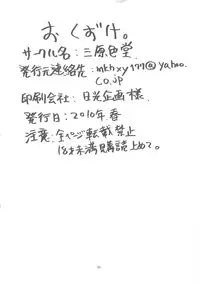 おくずけ。
サークル名：三原色堂
発行元連絡先：mkhxy177@yahoo.
co.jp
印刷会社：日光企画様
発行日：2010年春
注意：全ページ転載禁止
18才未満購読止めて。